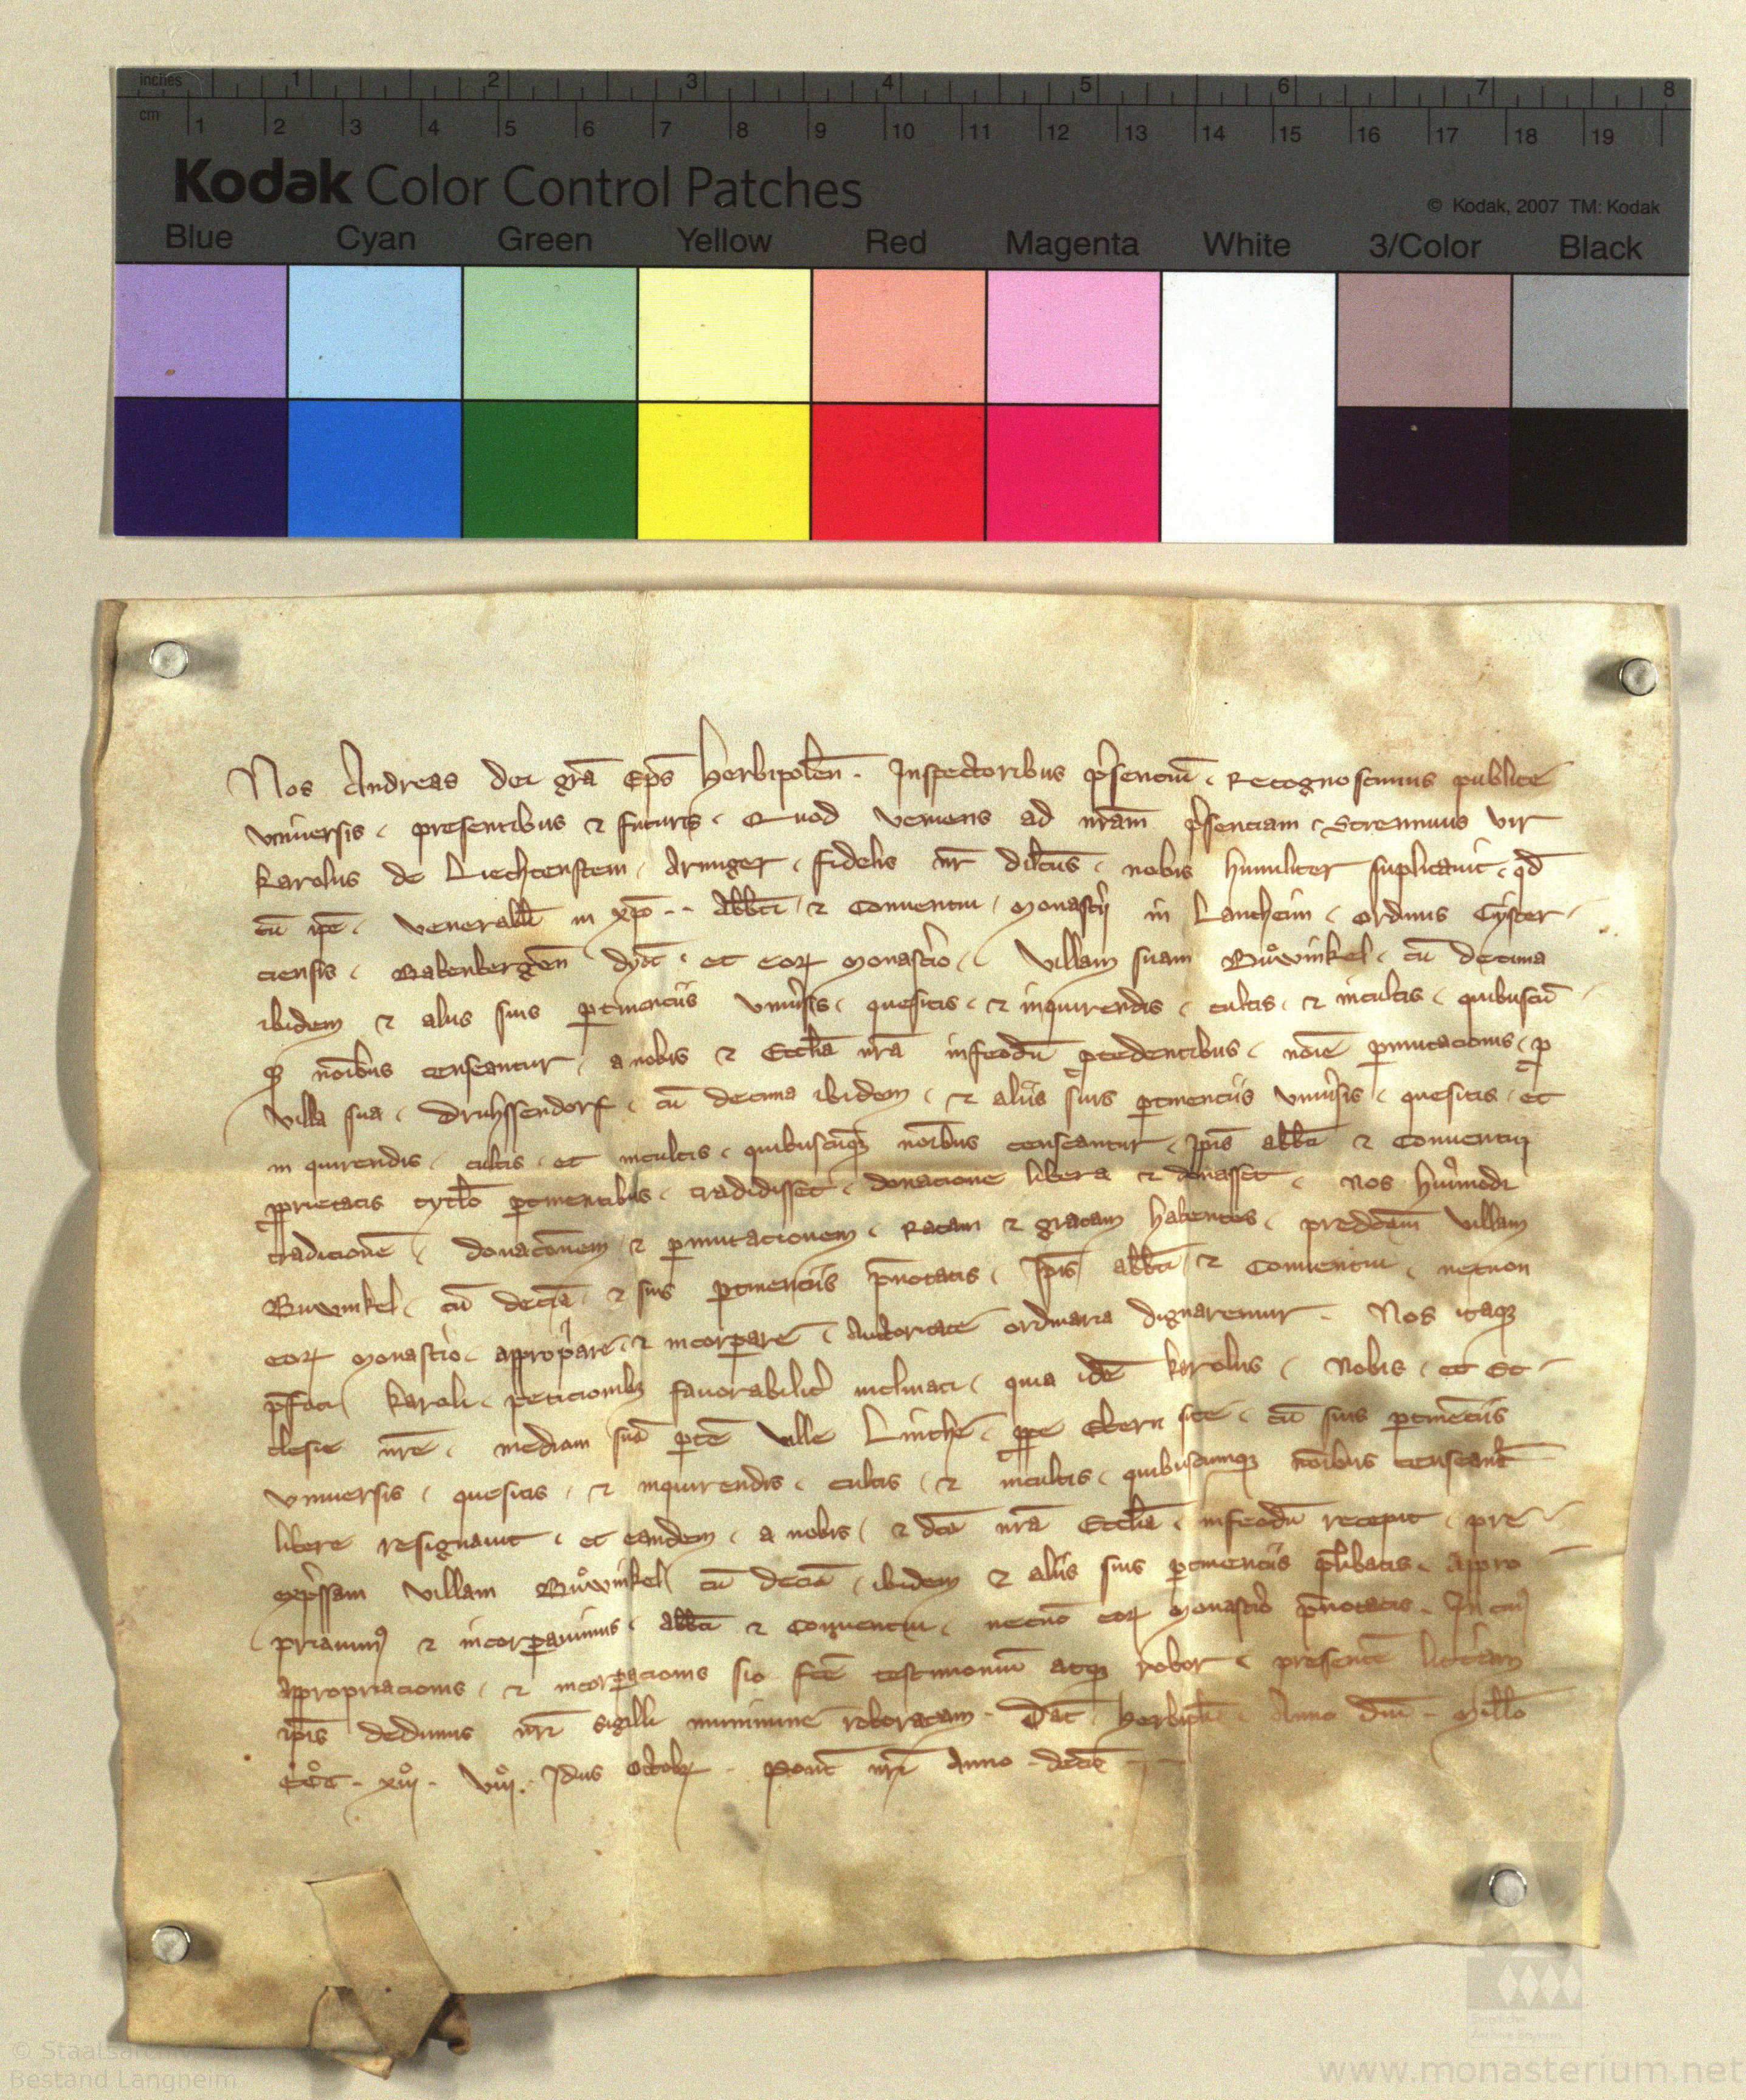 inches 1 2 3 4 5 6 7 8
cm 1 2 3 4 5 6 7 8 9 10 11 12 13 14 15 16 17 18 19
Kodak Color Control Patches
© Kodak, 2007 TM: Kodak
Blue Cyan Green Yellow Red Magenta White 3/Color Black
Nos Andreas dei gr̄a Ep̄s Herbipolen̄. Inspectoribus p̓senciū. Recognoscimus publice
vniuersis. presentibus ⁊ futuris. Quod veniens ad nr̄am p̓senciam. Strennuus vir
karolus de Liechtenstein. Armiger. fidelis nr̄ dil̄cus. nobis humiliter suplicauit. qd̄
cū ip̄e. venerabil̄ in xp̄o .. Abb̄ti ⁊ Conuentui Monast̓ij in Lantheim. ordinis Cyster
ciensis. Babenbergen̄ dyoc̄. et eoꝝ Monast̓io. villam suam Buͦwinkel. cū decima
ibidem ⁊ aliis suis ꝑtinenciis vniu̓sis. quesitis. ⁊ inquirendis. cultis. ⁊ incultis. quibuscū
qꝫ noīb̄us censeantur. a nobis ⁊ Eccl̄ia nr̄a infeodū ꝓcedentibus. noīe ꝑmutacionis. ꝓ
villa sua. Druhssendorf. cū decima ibidem. ⁊ aliis suis ꝑtinenciis vniu̓sis. quesitis. et
in quirendis. cultis. et incultis. quibuscūqꝫ noīb̄us censeantur. ip̄is abb̄ti ⁊ Conuentui
ꝓprietatis tytl̄o ꝑtinentibus. tradidisset. donacione libera ⁊ donasset. Nos hui̓modi
tradicionē. donac̄onem ⁊ ꝑmutacionem. Ratam ⁊ gratam habentes. predc̄am villam
Buwinkel. cū decīa ⁊ suis ꝑtinenciis p̄notatis. Ip̄is abb̄ti ⁊ Conuentui. necnon
eoꝝ Monast̓io. appropiare. ⁊ incorꝑare. Auctoritate ordinaria dignaremur. Nos itaqꝫ
p̄fati karoli. peticionibꝫ fauorabilit̓ inclinati. quia idē karolus. Nobis. et Ec
clesie nr̄e. mediam suā ꝑtē ville Linthē. ꝓpe Ebern sitē. cū suis ꝑtinēciis
vniuersis. quesitis. ⁊ inquirendis. cultis. ⁊ incultis. quibuscumqꝫ noīb̄us censeant̄
libere resignauit. et eandem. a nobis. ⁊ dc̄a nr̄a Eccl̄ia. infeodū recepit. pre
exp̓ssam villam Buͦwinkel cū deciā. ibidem ⁊ aliis suis ꝑtinenciis p̄libatis. Appro
priauimꝰ ⁊ incorꝑauimus. abb̄ti ⁊ Conuentui. necnō eoꝝ Monast̓io p̄notatis. In cuiꝰ
Appropriacionis. ⁊ incorꝑacionis sic fc̄e testimoniū atqꝫ robor. presentē litt̓am
ip̄is dedimus nr̄i sigilli munimine roboratam. Dat̄. Herbipl̄i. Anno dn̄i. Mill̄o
CCͦC. xiijͦ. viijͦ. Idus Octobꝝ. Pont̄ nr̄i Anno. decīo
© Staatsarchiv
Bestand Langheim
www.monasterium.net